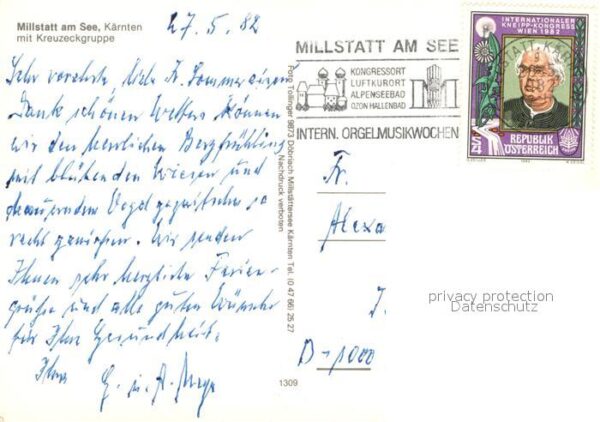 Millstatt am See, Kärnten
mit Kreuzeckgruppe
27.5.82
Sehr verehrte, liebe Fr. Sommer
Dank schönen Wetters können
wir den herrlichen Bergfrühling
mit blühenden Wiesen und
dauerndem Vogelgezwitscher so
recht genießen. Wir senden
Ihnen sehr herzliche Ferien-
grüße und alle guten Wünsche
für Ihre Gesundheit.
Ihre G. u. A.
Foto Tollinger 9873 Döbriach Millstättersee Kärnten Tel. (0 47 66) 25 27
Nachdruck verboten
1309
MILLSTATT AM SEE
KONGRESSORT
LUFTKURORT
ALPENSEEBAD
OZON HALLENBAD
INTERN. ORGELMUSIKWOCHEN
INTERNATIONALER
KNEIPP-KONGRESS
WIEN 1982
S4
REPUBLIK
ÖSTERREICH
Fr.
Alexa
J.
D-1000
privacy protection
Datenschutz